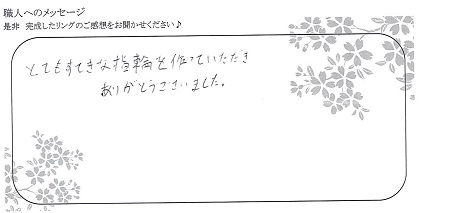 職人へのメッセージ
是非 完成したリングのご感想をお聞かせください♪
とてもすてきな指輪を作っていただき
ありがとうございました。